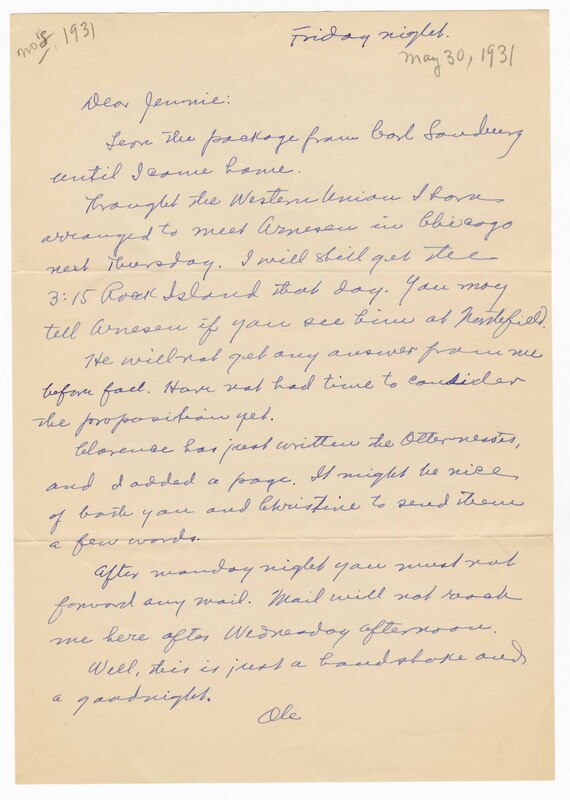 no. 8, 1931
Friday night.
May 30, 1931
Dear Jennie:
Leave the package from Carl Sandburg
until I come home.
Through the Western Union I have
arranged to meet Arnesen in Chicago
next Thursday. I will still get the
3:15 Rock Island that day. You may
tell Arnesen if you see him at Northfield.
He will not get any answer from me
before fall. Have not had time to consider
the proposition yet.
Clarence has just written the Otternesses,
and I added a page. It might be nice
of both you and Christine to send them
a few words.
After monday night you must not
forward any mail. Mail will not reach
me here after Wednesday afternoon.
Well, this is just a handshake and
a goodnight.
Ole